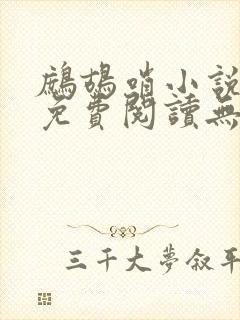 鷓鴣哨小說
免費閱讀無
三千大夢敘平